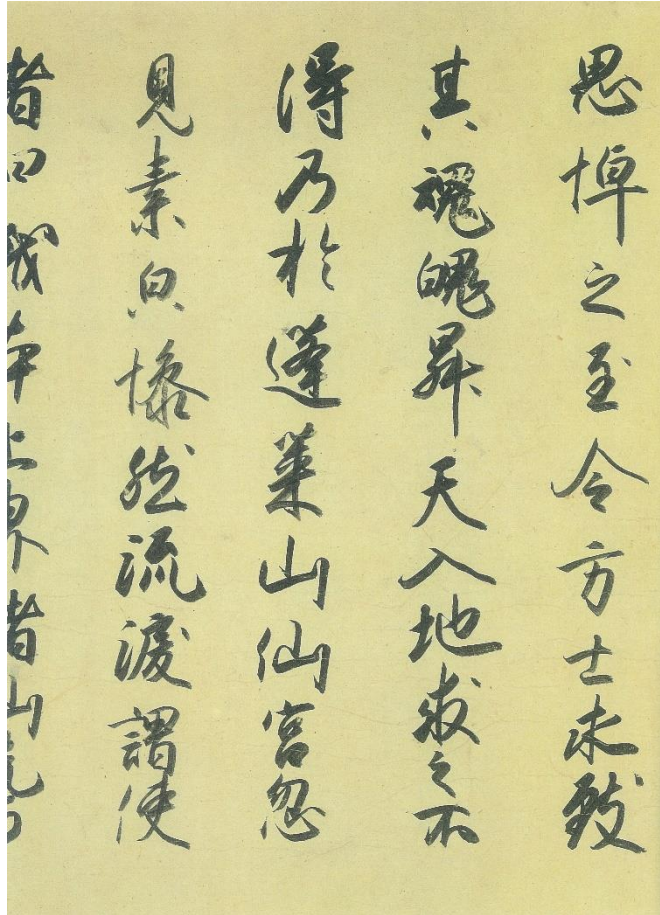 思悼之至令方士求致
其魂魄昇天入地求之不
得乃於蓬莱山仙宮忽
見素皃惨然流涙謂使
者曰我本上界